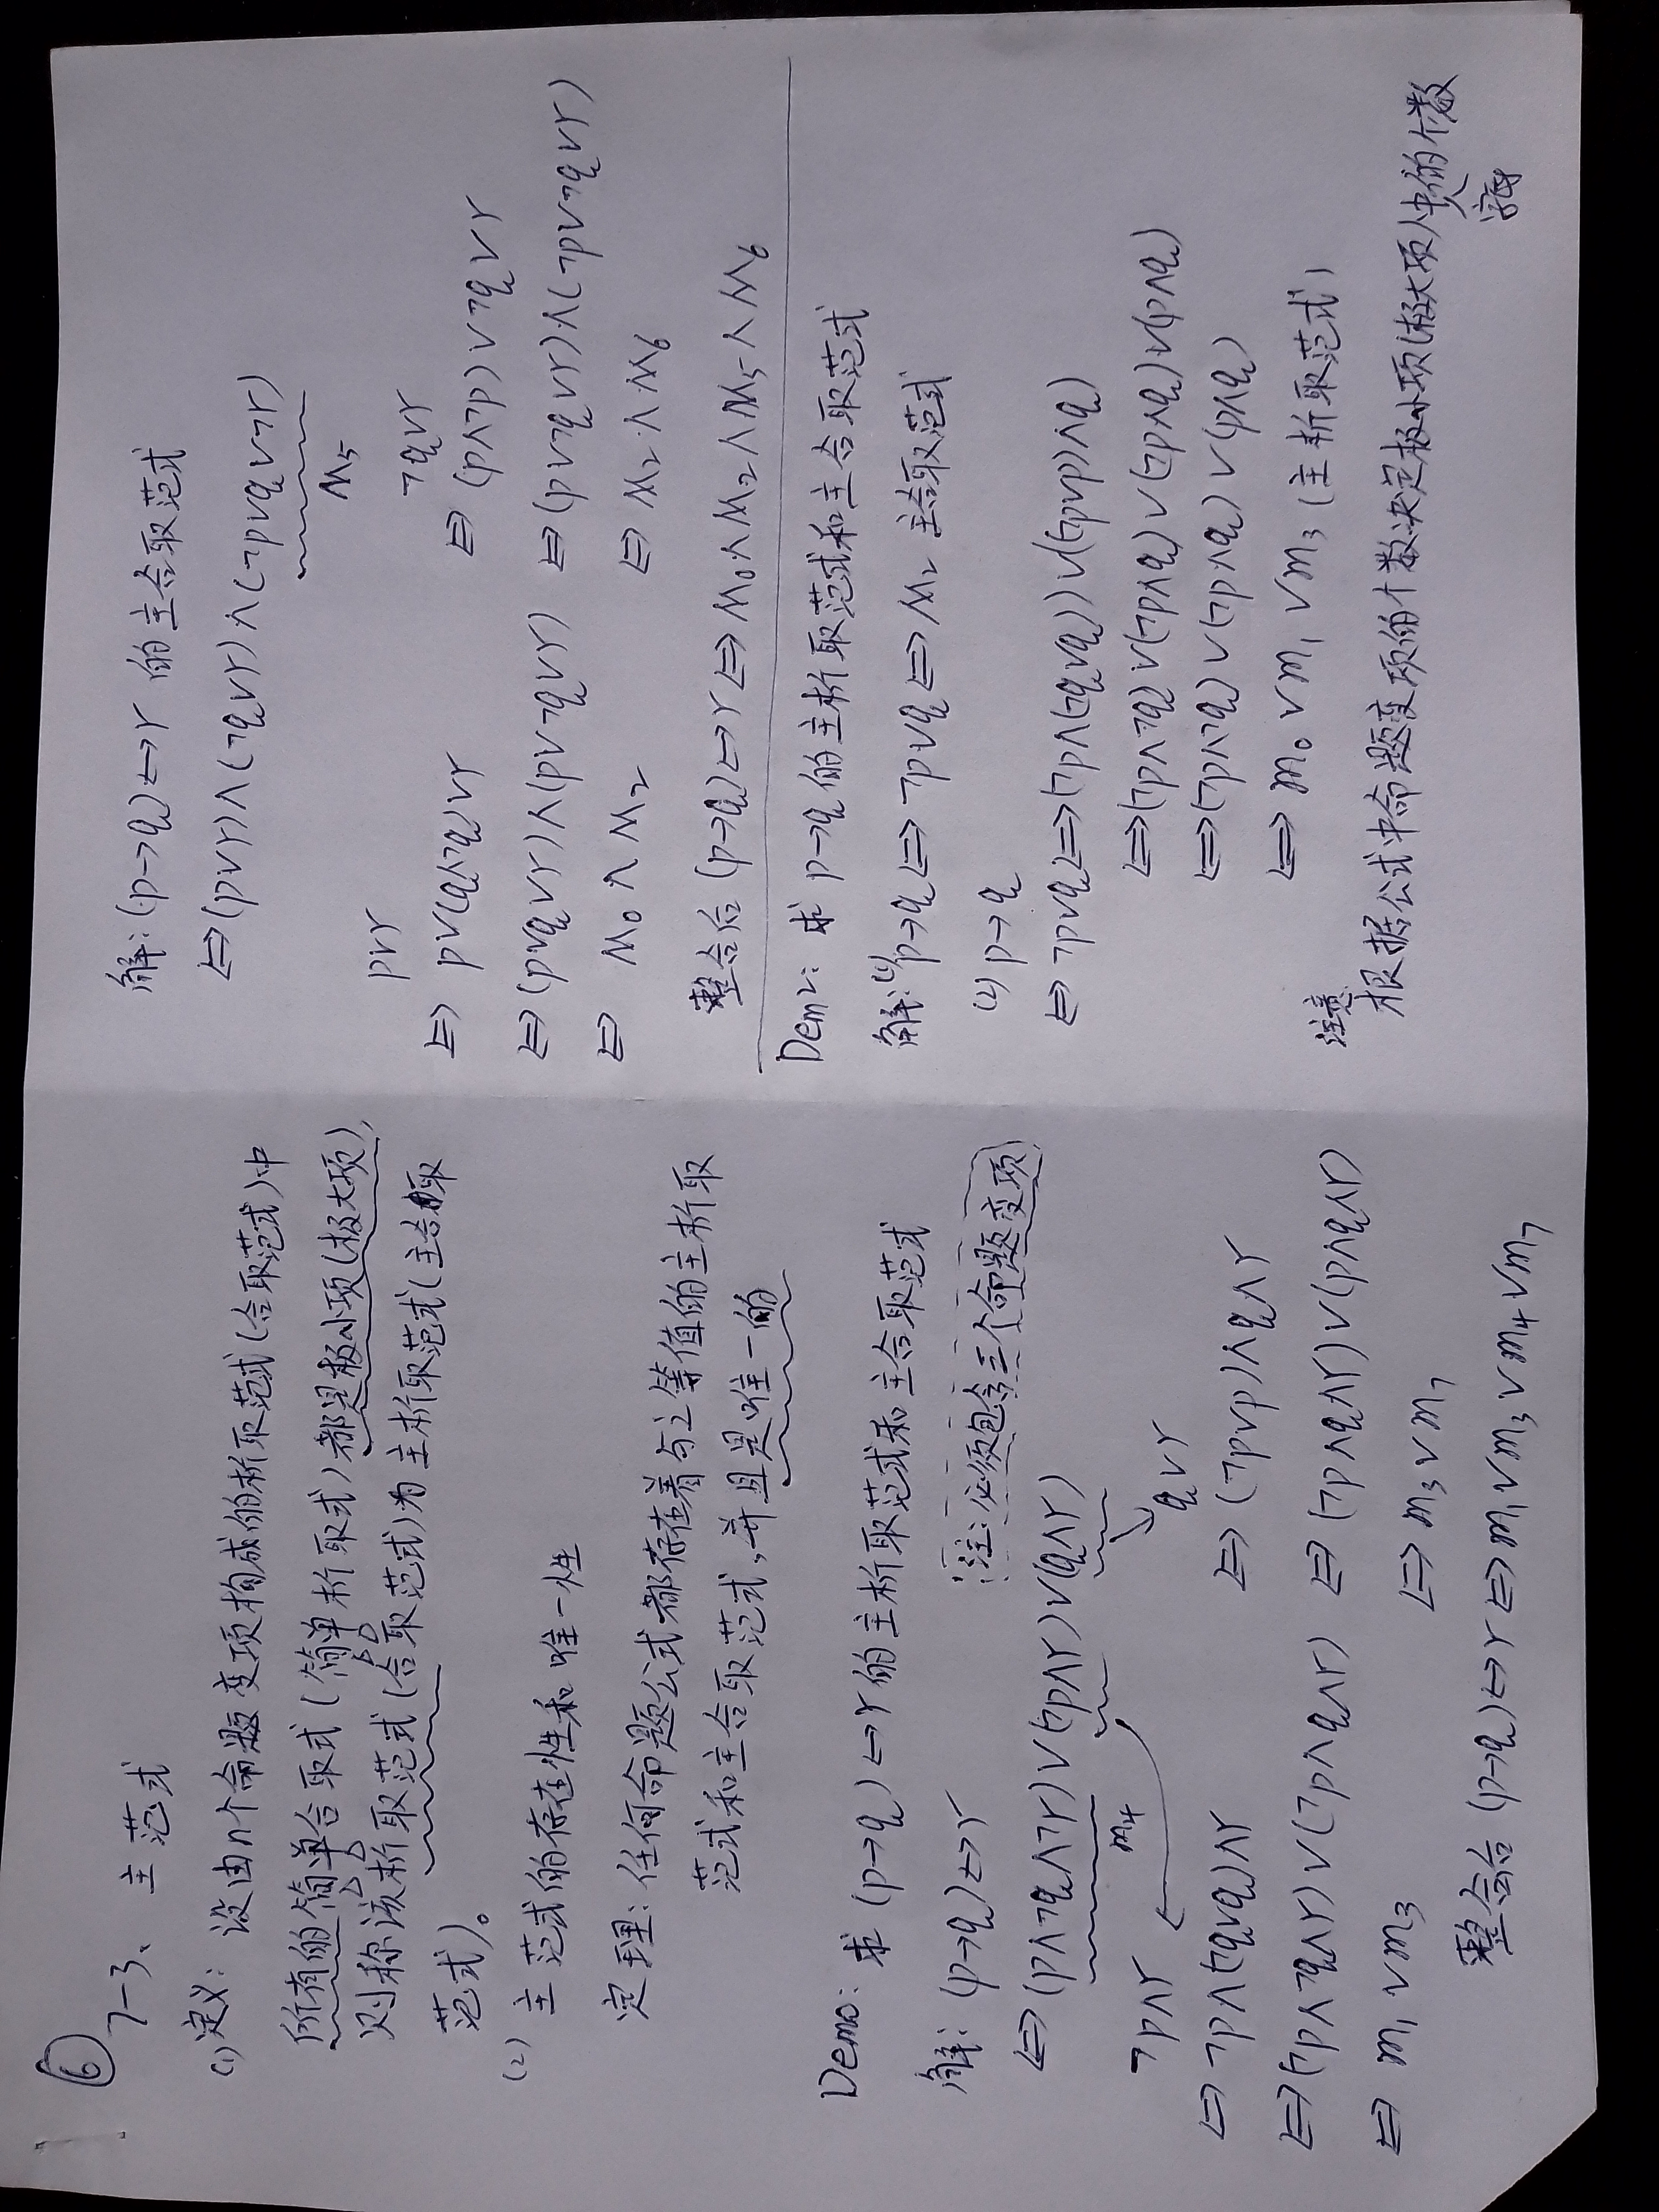 ⑥
7-3、主范式
(1)定义：设由n个命题变项构成的析取范式(合取范式)中
所有的简单合取式(简单析取式)都是极小项(极大项),
则称该析取范式(合取范式)为主析取范式(主合取
范式)。
(2) 主范式的存在性和唯一性
定理：任何命题公式都存在着与之等值的主析取
范式和主合取范式,并且是唯一的
Demo: 求 (p→q)↔r的主析取范式和主合取范式
解：(p→q)↔r
注:必须包含三个命题变项
⇔(p∧¬q∧¬r)∨(¬p∧r)∨(q∧r)
m₄
¬p∧r
⇔¬p∧(¬q∨q)∧r
⇔(¬p∧¬q∧r)∨(¬p∧q∧r)
⇔ m₁∨m₃
q∨r
⇔ (¬p∨p)∧q∧r
⇔ (¬p∧q∧r)∨(p∧q∧r)
⇔ m₃∨m₇
整合后 (p→q)↔r⇔m₁∨m₃∨m₄∨m₇
解: (p→q)↔r 的主合取范式
⇔(p∨r)∧(¬q∨r)∧(¬p∨q∨¬r)
M₅
p∨r
⇔ p∨(q∧¬q)∨r
⇔(p∨q∨r)∧(p∨¬q∨r)
⇔ M₀∧M₂
¬q∨r
⇔ (p∧¬p)∨¬q∨r
⇔(p∨¬q∨r)∧(¬p∨¬q∨r)
⇔ M₂∧M₆
整合后 (p→q)↔r⇔M₀∧M₂∧M₅∧M₆
Dem2: 求 p→q的主析取范式和主合取范式
解:(1)p→q⇔¬p∨q⇔M₂ 主合取范式
(2)p→q
⇔¬p∨q⇔(¬p∧(¬q∨q))∨((¬p∨p)∧q)
⇔(¬p∧¬q)∨(¬p∧q)∨(¬p∧q)∨(p∧q)
⇔(¬p∧¬q)∨(¬p∧q)∨(p∧q)
⇔ m₀∨m₁∨m₃(主析取范式)
注意
根据公式中命题变项的个数决定极小项(极大项)中的个数
字母